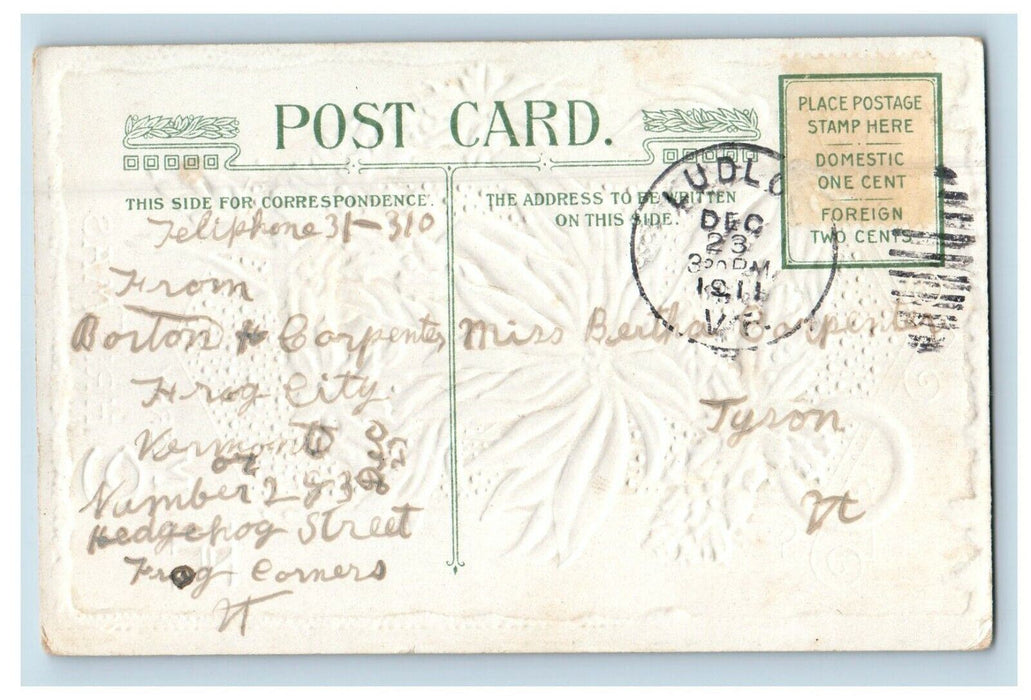 POST CARD.
THIS SIDE FOR CORRESPONDENCE.
THE ADDRESS TO BE WRITTEN
ON THIS SIDE.
PLACE POSTAGE
STAMP HERE
DOMESTIC
ONE CENT
FOREIGN
TWO CENTS
LUDLO
DEC
23
3 30 PM
1911
VT.
Teliphone 31-310
From
Borton & Carpenter
Frog City
Vermont
or
Number 2 & 3
Hedgehog Street
Frog Corners
Vt
Dec
25
Miss Bertha Carpenter
Tyson
Vt